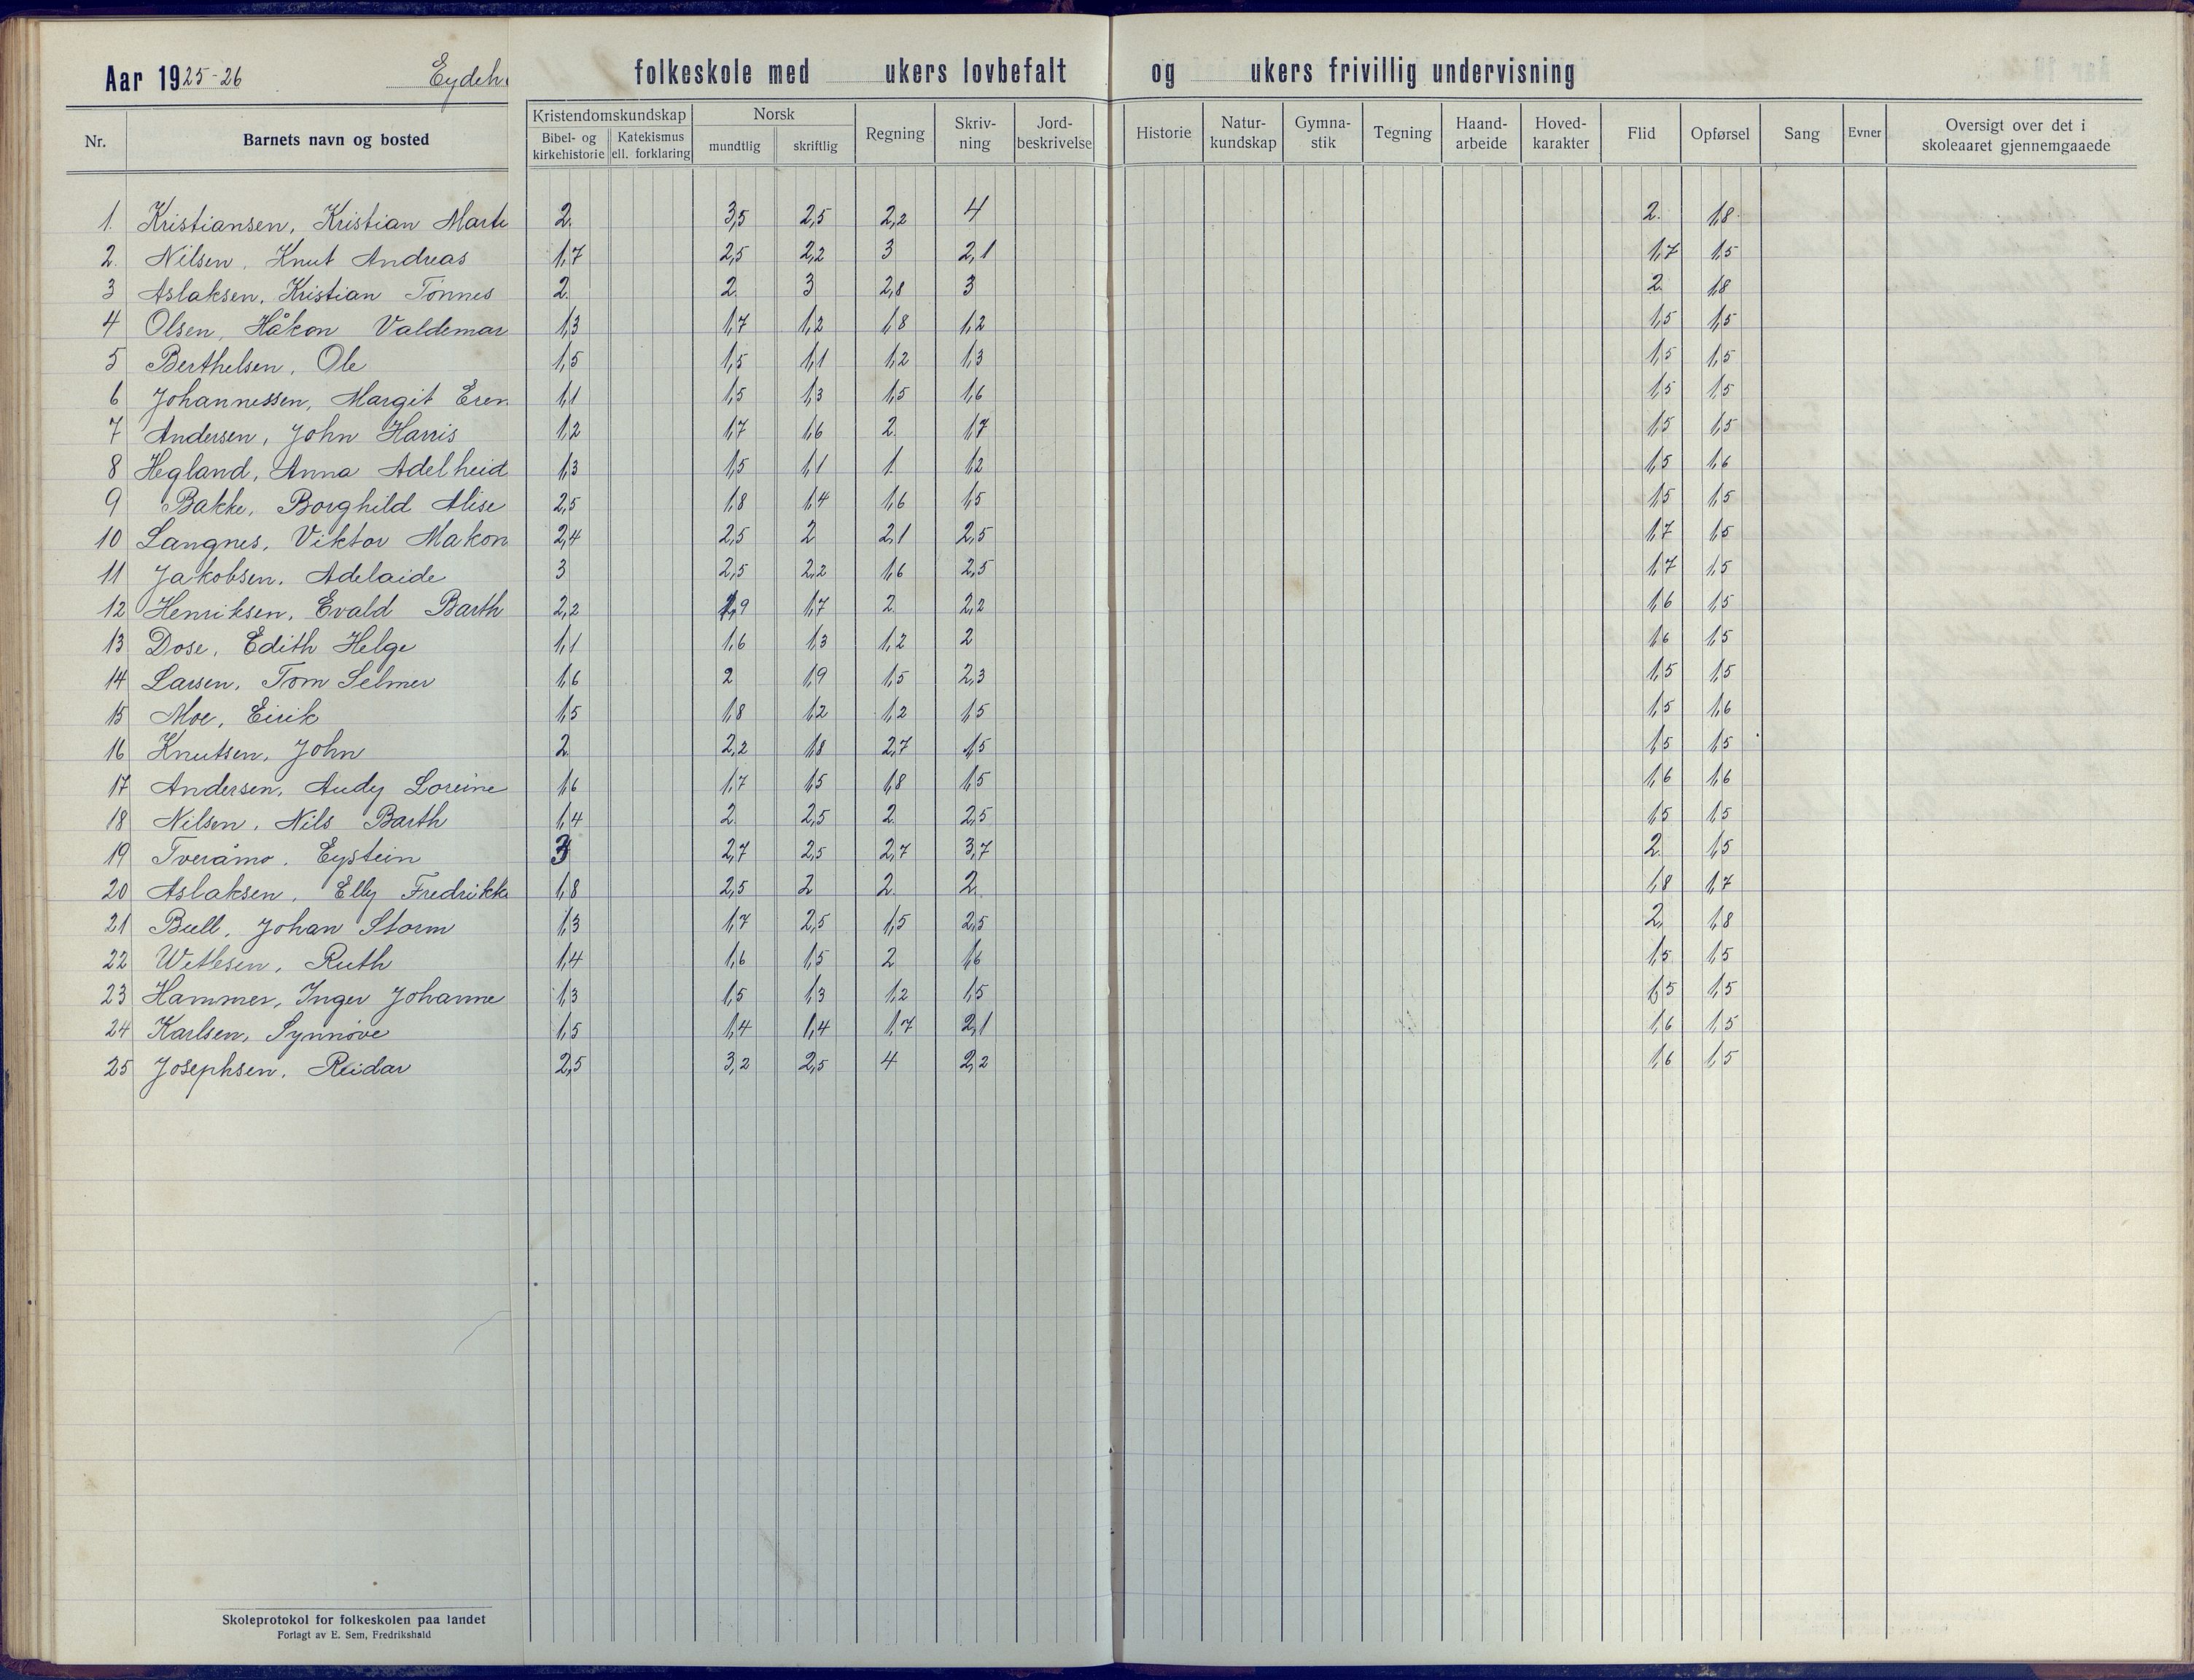 Aar 1925-26 Eydeh
folkeskole med ukers lovbefalt og ukers frivillig undervisning
Nr. Barnets navn og bosted Kristendomskundskap Bibel- og kirkehistorie Katekismus ell. forklaring Norsk mundtlig skriftlig Regning Skriv-ning Jord-beskrivelse Historie Natur-kundskap Gymna-stik Tegning Haand-arbeide Hoved-karakter Flid Opførsel Sang Evner Oversigt over det i skoleaaret gjennemgaaede
1. Kristiansen, Kristian Marti 2. 3,5 2,5 2,2 4 2. 1,8
2. Nilsen, Knut Andreas 1,7 2,5 2,2 3 2,1 1,7 1,5
3 Aslaksen, Kristian Tönnes 2. 2. 3 2,8 3 2. 1,8
4 Olsen, Håkon Valdemar 1,3 1,7 1,2 1,8 1,2 1,5 1,5
5 Berthelsen, Ole 1,5 1,5 1,1 1,2 1,3 1,5 1,5
6 Johannessen, Margit Eren 1,1 1,5 1,3 1,5 1,6 1,5 1,5
7 Andersen, John Harris 1,2 1,7 1,6 2. 1,7 1,5 1,5
8 Hegland, Anna Adelheid 1,3 1,5 1,1 1. 1,2 1,5 1,6
9 Bakke, Borghild Alise 2,5 1,8 1,4 1,6 1,5 1,5 1,5
10 Langnes, Viktor Makon 2,4 2,5 2 2,1 2,5 1,7 1,5
11 Jakobsen, Adelaide 3 2,5 2,2 1,6 2,5 1,7 1,5
12 Henriksen, Evald Barth 2,2 1,9 1,7 2. 2,2 1,6 1,5
13 Dose, Edith Helge 1,1 1,6 1,3 1,2 2 1,6 1,5
14 Larsen, Tom Selmer 1,6 2 1,9 1,5 2,3 1,5 1,5
15 Moe, Eirik 1,5 1,8 1,2 1,2 1,5 1,5 1,6
16 Knutsen, John 2. 2,2 1,8 2,7 1,5 1,5 1,5
17 Andersen, Audy Loreine 1,6 1,7 1,5 1,8 1,5 1,6 1,6
18 Nilsen, Nils Barth 1,4 2. 2,5 2. 2,5 1,5 1,5
19 Tveråmo, Eystein 3 2,7 2,5 2,7 3,7 2. 1,5
20 Aslaksen, Elly Fredrikke 1,8 2,5 2 2. 2. 1,8 1,7
21 Bull, Johan Storm 1,3 1,7 2,5 1,5 2,5 2, 1,8
22 Wetlesen, Ruth 1,4 1,6 1,5 2 1,6 1,5 1,5
23 Hammer, Inger Johanne 1,3 1,5 1,3 1,2 1,5 1,5 1,5
24 Karlsen, Synnöve 1,5 1,4 1,4 1,7 2,1 1,6 1,5
25 Josephsen, Reidar 2,5 3,2 2,5 4 2,2 1,6 1,5
Skoleprotokol for folkeskolen paa landet
Forlagt av E. Sem, Fredrikshald